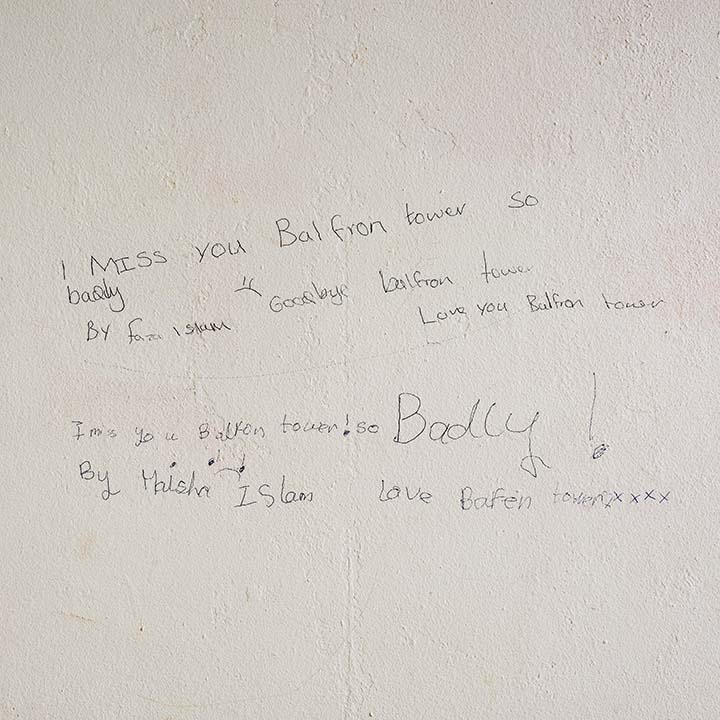 I MISS you Balfron tower so
badly
Goodbye balfron tower
By faza islam
Love you Balfron tower
I mis you Balfron tower! so Badly!
By Maisha ISlam
love Balfron tower xxxx